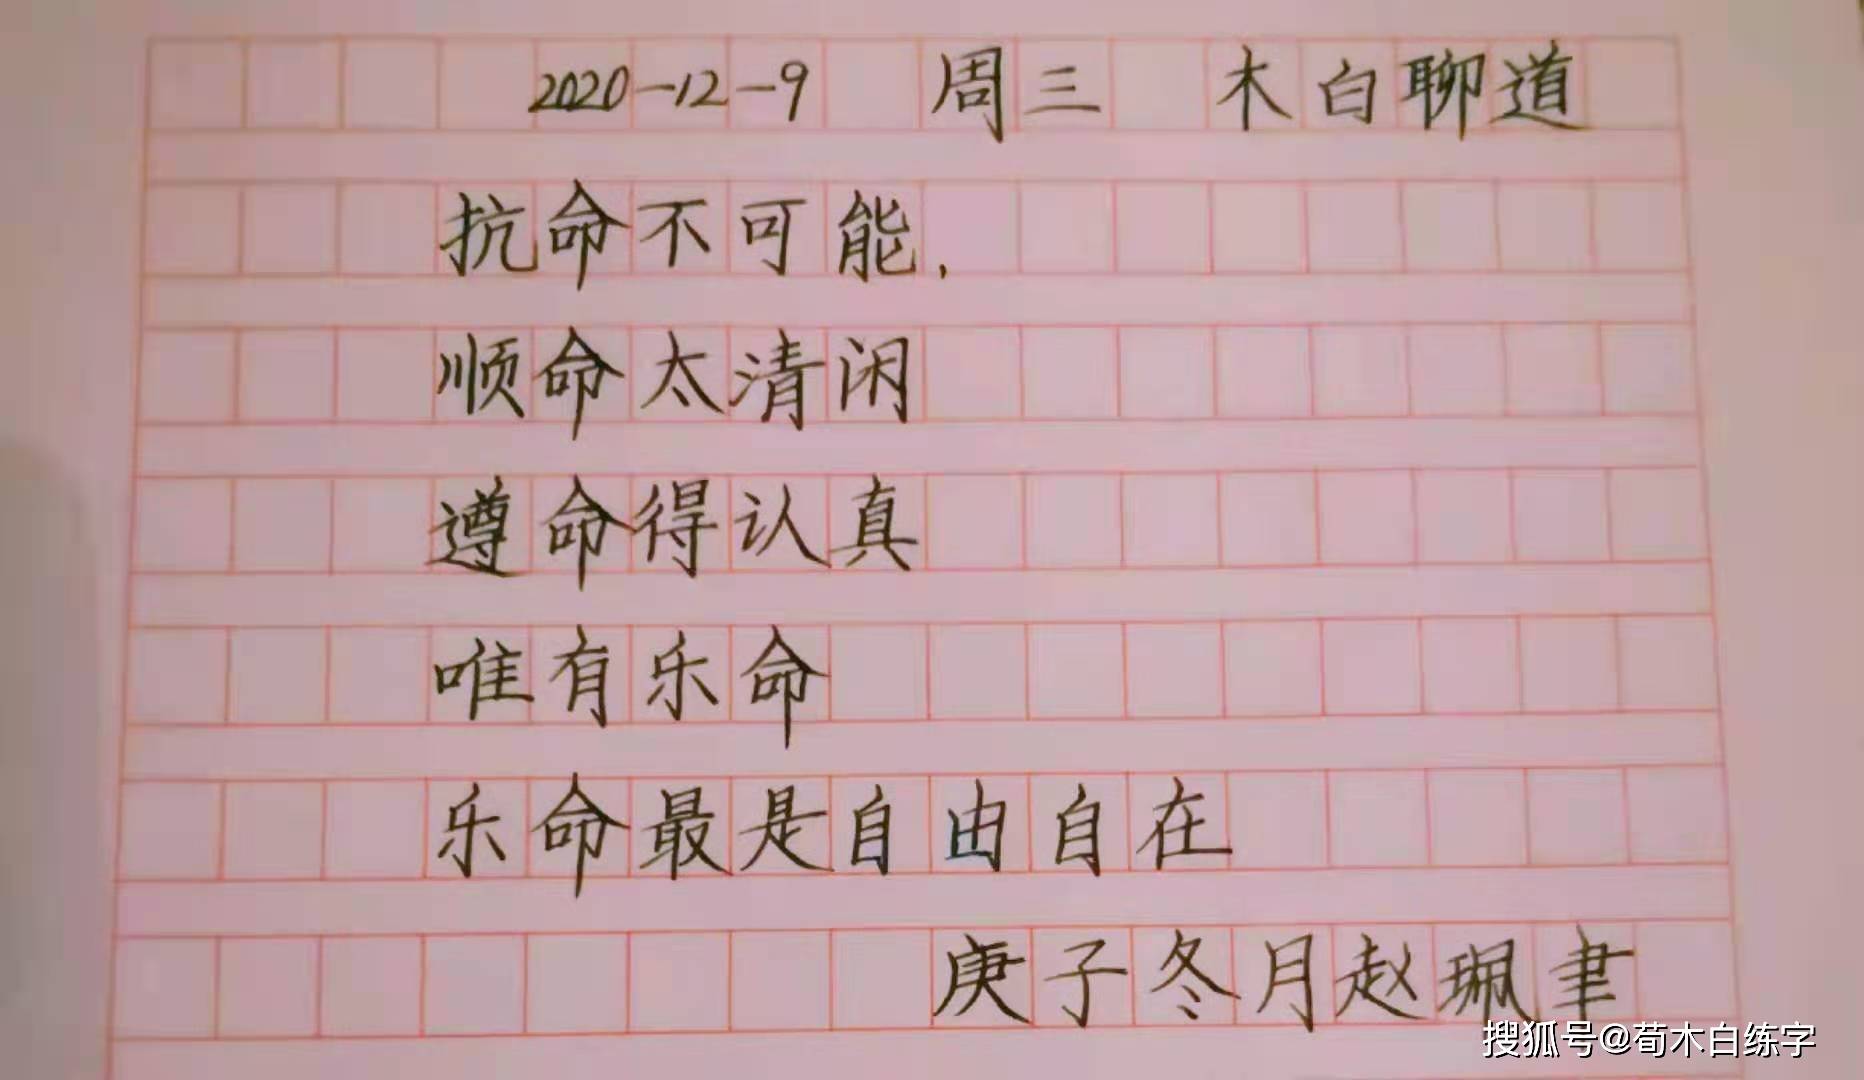 2020-12-9 周三 木白聊道
抗命不可能,
顺命太清闲
遵命得认真
唯有乐命
乐命最是自由自在
庚子冬月赵珮聿
搜狐号@荀木白练字